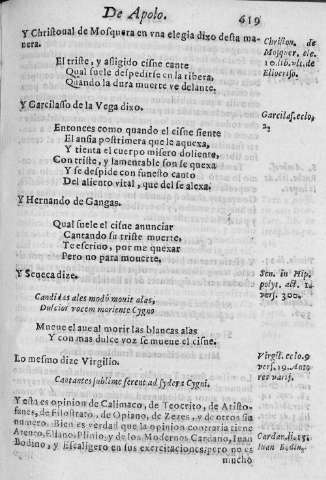 De Apolo. 619
Y Christoual de Mosquera en vna elegia dixo desta ma-
nera.
Christou. de
Mosquer, ele.
10. lib. vlt. de
Eliocriso.
El triste, y afligido cisne cante
Qual suele despedirse en la ribera,
Quando la dura muerte ve delante.
Y Garcilasso de la Vega dixo.
Garcilas. eclo,
2,
Entonces como quando el cisne siente
El ansia postrimera que le aquexa,
Y tienta el cuerpo misero doliente,
Con triste, y lamentable son se quexa
Y se despide con funesto canto
Del aliento vital, que del se alexa.
Y Hernando de Gangas.
Qual suele el cisne anunciar
Cantando su triste muerte,
Te escriuo, por me quexar
Pero no para mouerte.
Y Seneca dize.
Sen. in Hip
polyt. act. 1.
vers. 300.
Candidas ales modò mouit alas,
Dulcior vocem moriente Cygno
Mueue el aue al morir las blancas alas
Y con mas dulce voz se mueue el cisne.
Lo mesmo dize Virgilio.
Virgil. eclo. 9
vers. 29.
Cantantes sublime ferent ad sydera Cygni.
Y esta es opinion de Calimaco, de Teocrito, de Aristo-
fanes, de Filostrato, de Opiano, de Zezes, y de otros sin
numero. Bien es verdad que la opinion contraria tiene
Ateneo, Eliano, Plinio, y de los Modernos Cardano, Iuan
Bodino, y Escaligero en sus exercitaciones, pero no es
Cardan. li. 15.
Iuan Bodin.
mucho